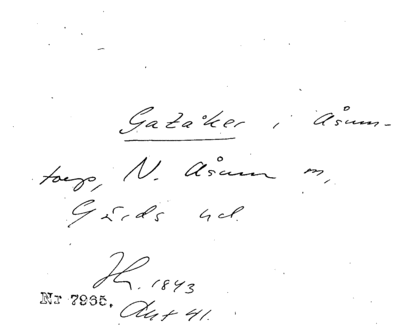 Gazåker i Åsum-
torp, N. Åsum m,
Gärds hd.
1843
Nr 7965.
41.